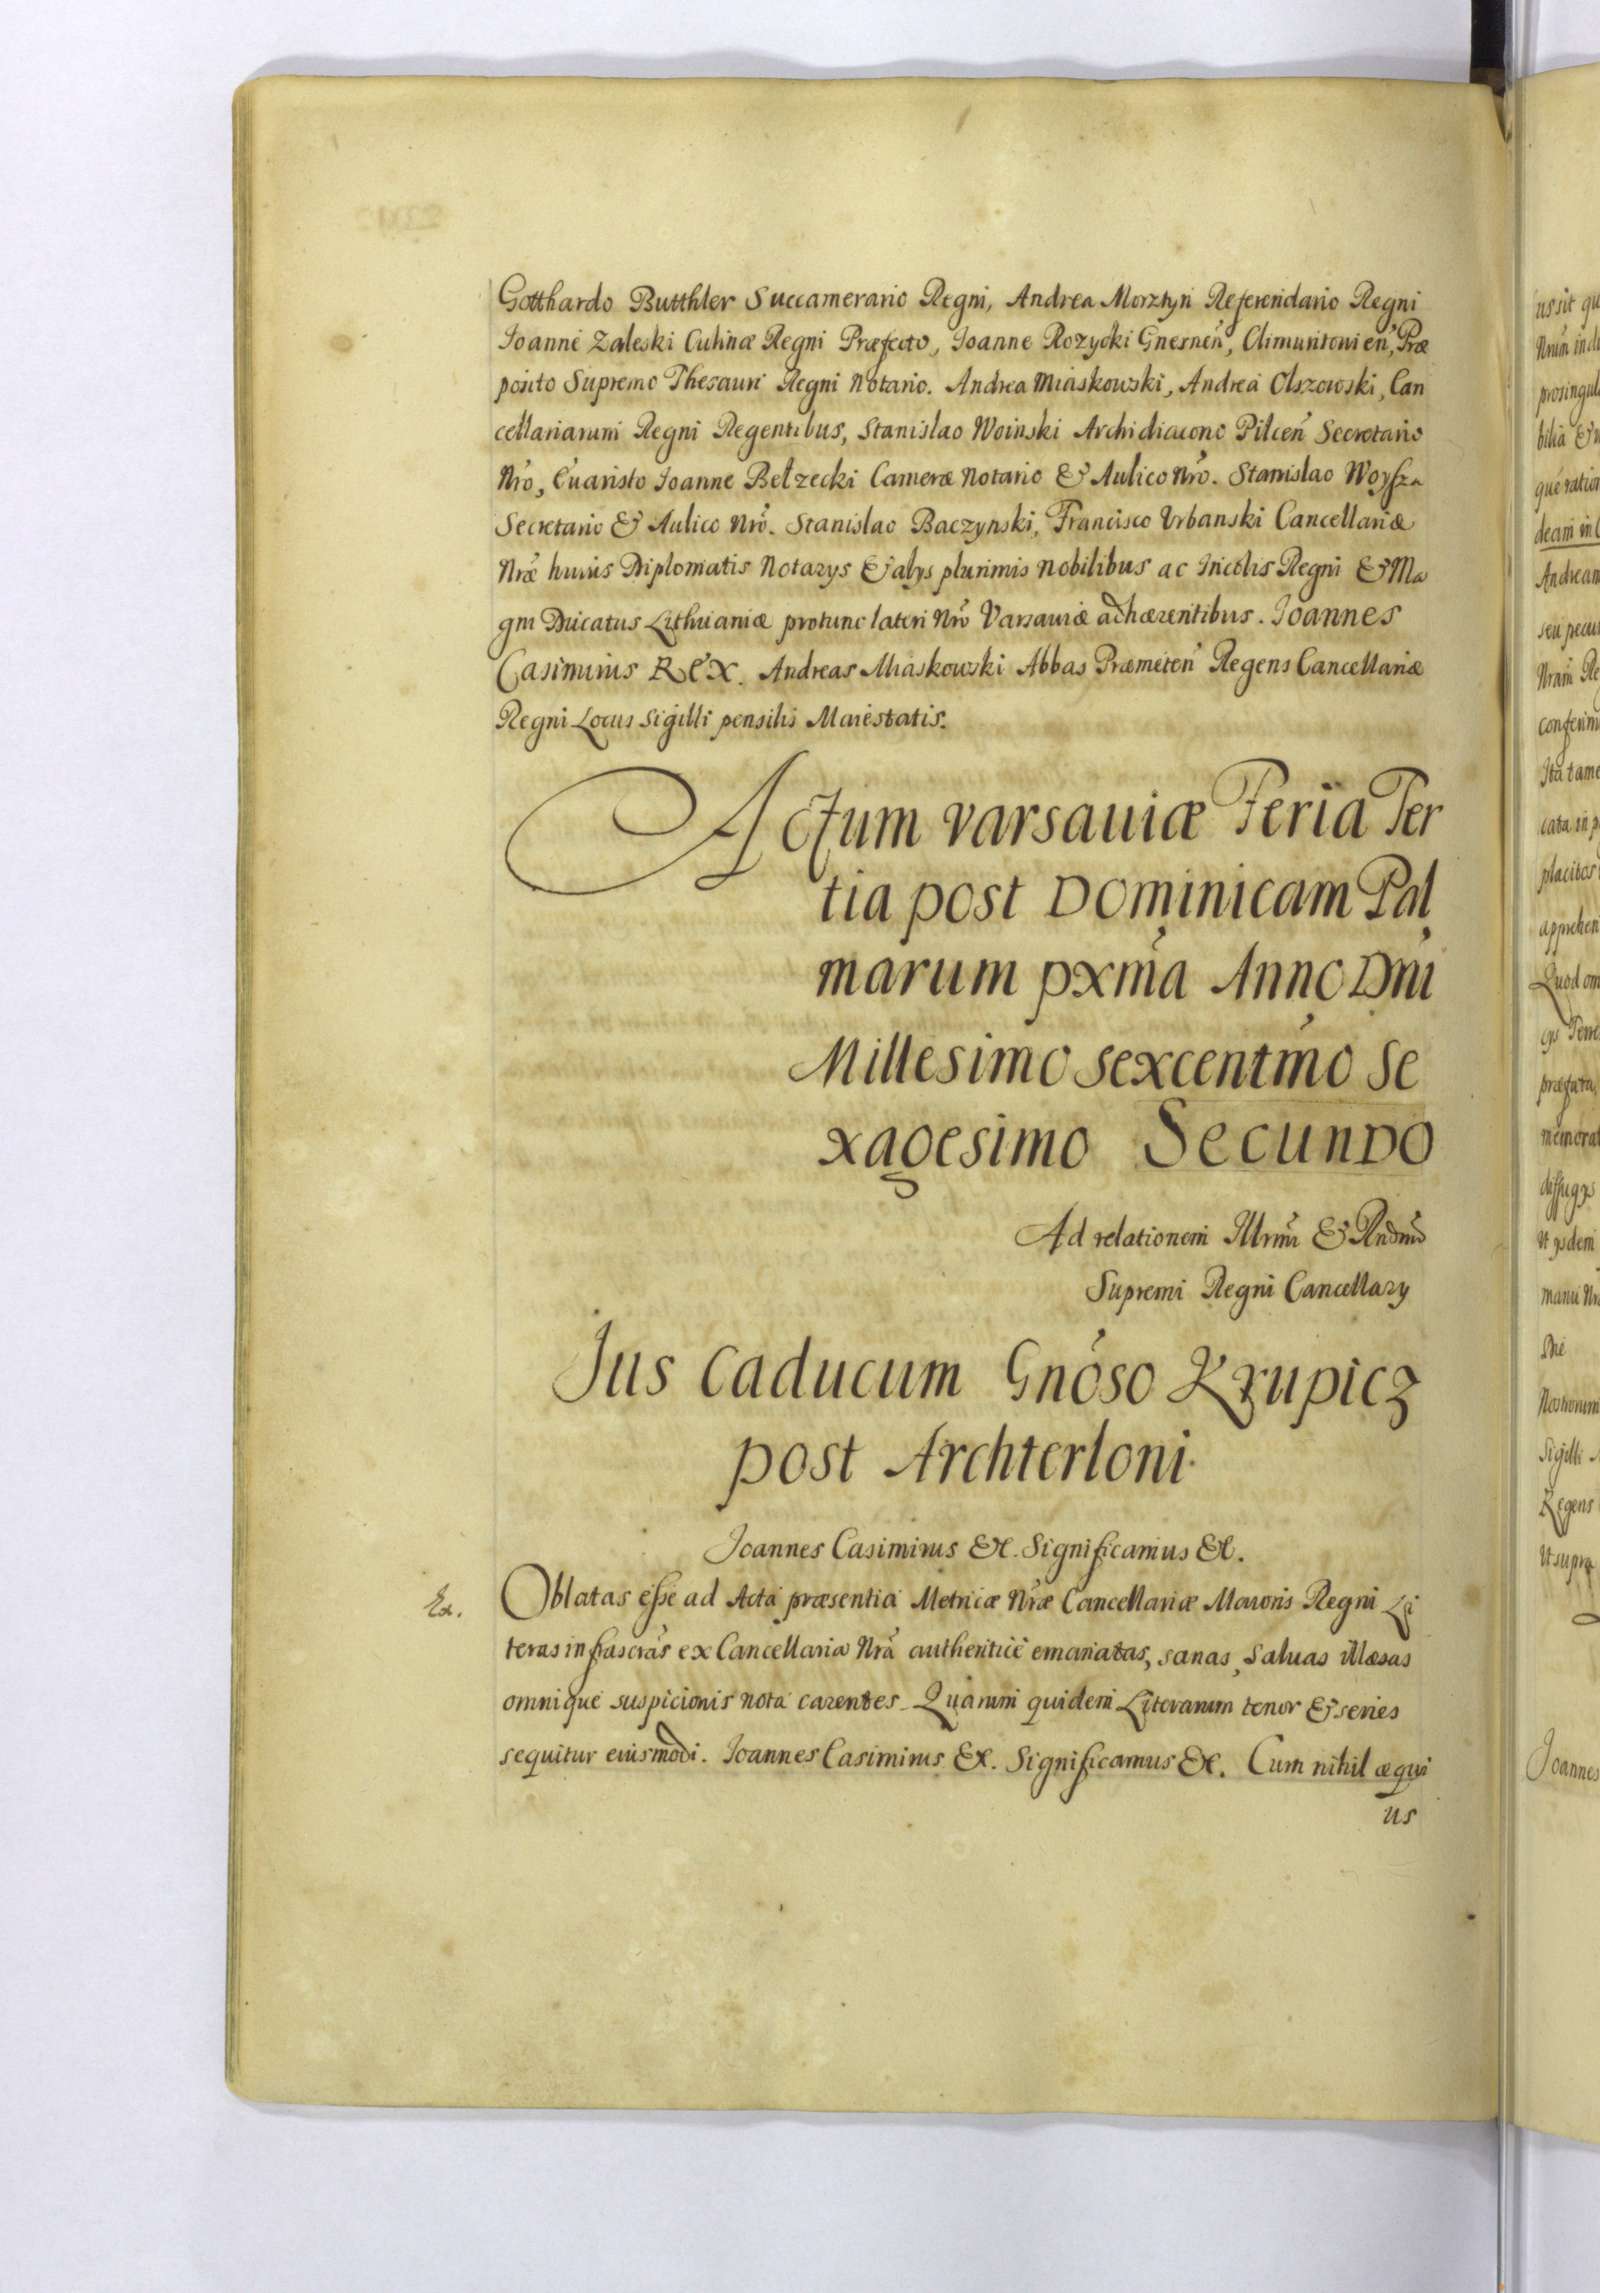 Gotthardo Butthler Succamerario Regni, Andrea Morztyn Referendario Regni
Joanne Zaleski Culinæ Regni Præfecto, Joanne Rozycki Gnesneñ, Climuntowieñ, Præ
posito Supremo Thesauri Regni Notario. Andrea Miaskowski, Andrea Olszowski, Can
cellariarum Regni Regentibus, Stanislao Woinski Archidiacono Pilceñ Secretario
Nrõ, Evaristo Joanne Bełzecki Cameræ Notario & Aulico Nrõ. Stanislao Woysza
Secretario & Aulico Nrõ. Stanislao Baczynski, Francisco Urbanski Cancellariæ
Nræ huius Diplomatis Notarys & alys plurimis nobilibus ac Incolis Regni & Ma
gni Ducatus Lithuaniæ protunc lateri Nrõ Varsauiæ adhærentibus. Joannes
Casimirus REX. Andreas Miaskowski Abbas Præmeteñ Regens Cancellariæ
Regni Locus Sigilli pensilis Maiestatis.
Actum varsauiæ Feria Ter
tia post Dominicam Pal
marum pxmã Anno Dñi
Millesimo sexcentmõ se
xagesimo Secundo
Ad relationem Illrmi & Rndmi
Supremi Regni Cancellary
Jus Caducum Gnõso Krupicz
post Archterloni.
Joannes Casimirus &c. Significamus &c.
Ex.
Oblatas esse ad Acta præsentia Metricæ Nræ Cancellariæ Maioris Regni Li
teras infrascrãs ex Cancellaria Nrã authentice emanatas, sanas, saluas illæsas
omnique suspicionis nota carentes. Quarum quidem Literarum tenor & series
sequitur eiusmodi. Joannes Casimirus &c. Significamus &c. Cum nihil æqui
us